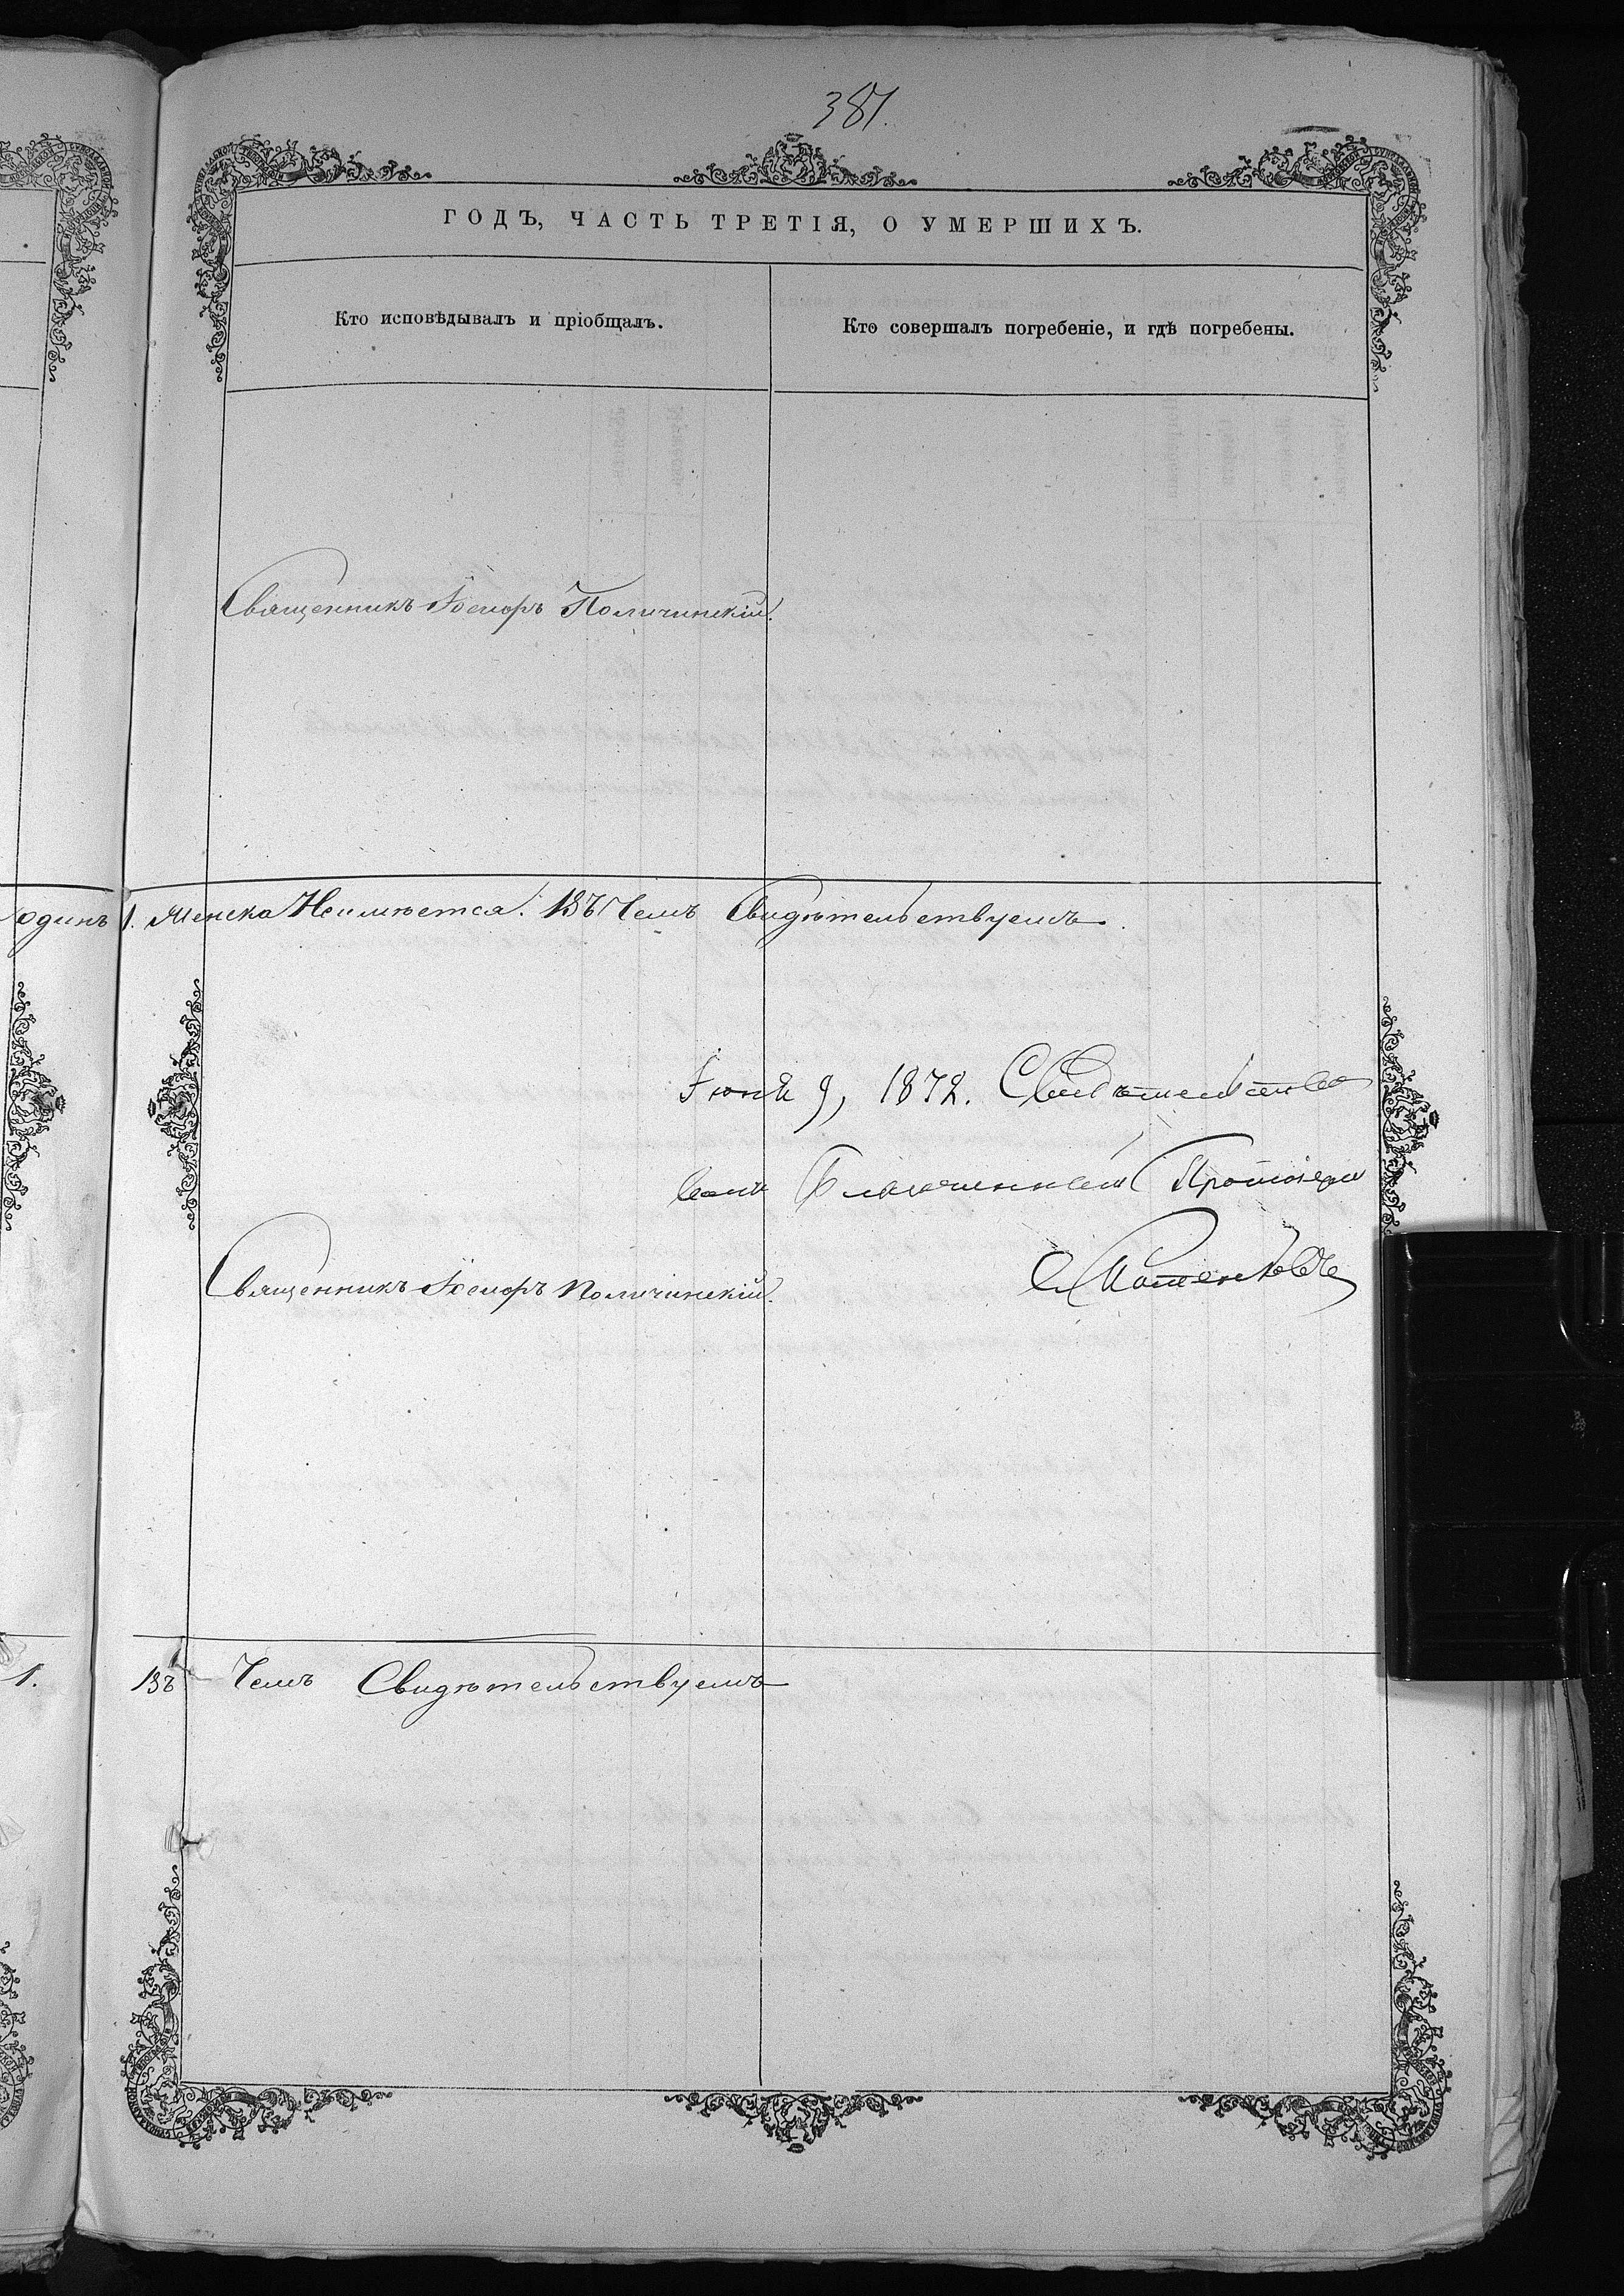 381.
ГОДЪ, ЧАСТЬ ТРЕТІЯ, О УМЕРШИХЪ.
Кто исповѣдывалъ и пріобщалъ.
Кто совершалъ погребеніе, и гдѣ погребены.
Священникъ Поличинскій.
одинъ 1. Женска Неимѣется. Въ Чемъ Свидѣтельствуемъ.
Іюня 9, 1872. Свидѣтельство
валъ Благочинный Протоіерей
Священникъ Поличинскій.
1. Въ Чемъ Свидѣтельствуемъ